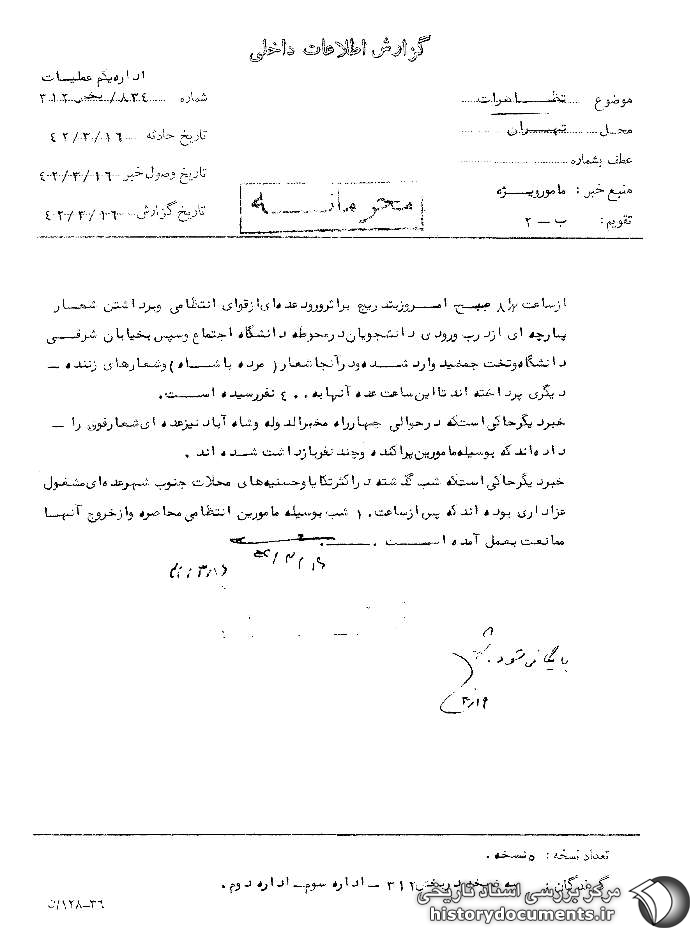 گزارش اطلاعات داخلی
اداره یکم عملیات
موضوع تظاهرات
شماره ۸۳۴/ بخش ۳۱۲
محل تهران
تاریخ حادثه ۴۲/۳/۱۶
عطف بشماره
تاریخ وصول خبر ۴۲/۳/۱۶
منبع خبر : مامور ویژه
تاریخ گزارش ۴۲/۳/۱۶
تقویم : ب – ۲
محرمانه
از ساعت ۸ صبح امروز بتدریج براثر ورود عده‌ای از قوای انتظامی و برداشتن شعار
پارچه ای از درب ورودی دانشجویان در محوطه دانشگاه اجتماع و سپس بخیابان شرقی
دانشگاه و تخت جمشید وارد شده و در آنجا شعار ( مرده باد شاه ) و شعارهای زننده –
دیگری پرداخته اند تا این ساعت عده آنها به ۴۰۰ نفر رسیده است .
خبر دیگر حاکی استکه در حوالی چهارراه مخبرالدوله و شاه آباد نیز عده ای شعار فوق را –
داده‌اند که بوسیله مامورین پراکنده و چند نفر بازداشت شده اند .
خبر دیگر حاکی استکه شب گذشته در اکثر تکایا و حسنیه‌های محلات جنوب شهر عده‌ای مشغول
عزاداری بوده اند که پس از ساعت ۱۰ شب بوسیله مامورین انتظامی محاصره و از خروج آنها
ممانعت بعمل آمده است .
بایگانی شود
۳/۱۹
تعداد نسخه : ۵ نسخه .
گیرندگان : سه نسخه در بخش ۳۱۲ – اداره سوم – اداره دوم .
مرکز بررسی اسناد تاریخی
historydocuments.ir
۳۶–۱۲۸/ت